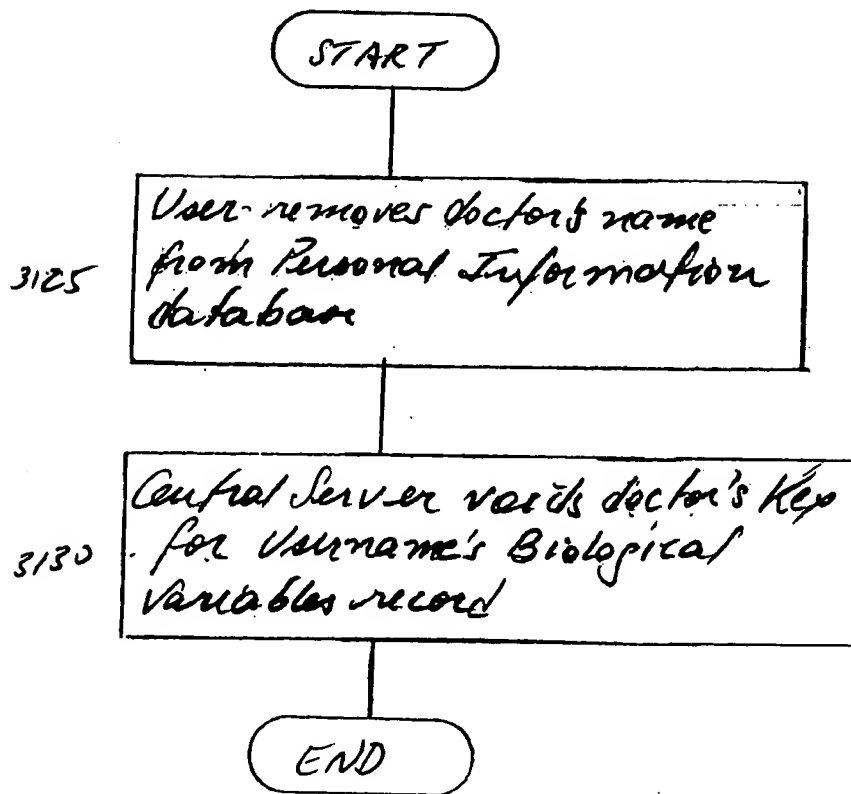 START
User removes doctor's name
3125
from Personal Information
database
Central Server voids doctor's Key
3130
for Username's Biological
Variables record
END